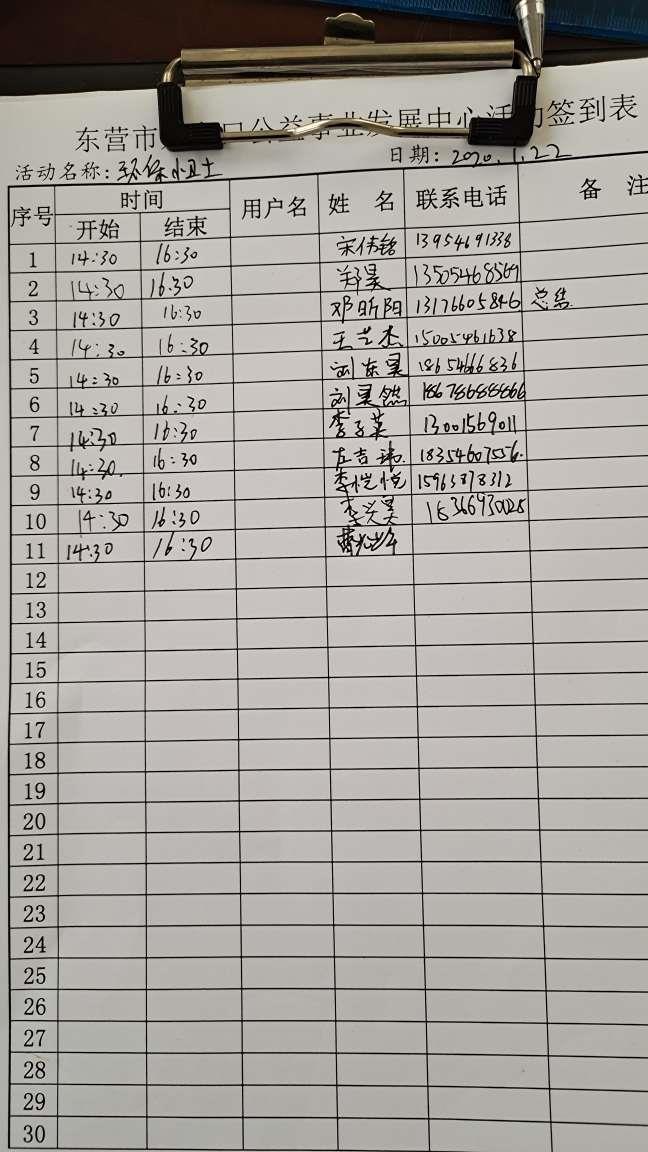 东营市 口公益事业发展中心活动签到表
活动名称:环保小卫士 日期:2020.1.22
序号 时间 用户名 姓 名 联系电话 备 注
开始 结束
1 14:30 16:30 宋伟铭 13954691338
2 14:30 16:30 郑昊 13505468569
3 14:30 16:30 邓昕阳 13176605846 总结
4 14:30 16:30 王艺杰 15005461638
5 14:30 16:30 刘东昊 18654666836
6 14:30 16:30 刘昊然 18678688866
7 14:30 16:30 李子英 13001569011
8 14:30. 16:30 左吉玮 18354607556.
9 14:30 16:30 李恺悦 15963878312
10 14:30 16:30 李兴昊 18366930028
11 14:30 16:30
12
13
14
15
16
17
18
19
20
21
22
23
24
25
26
27
28
29
30